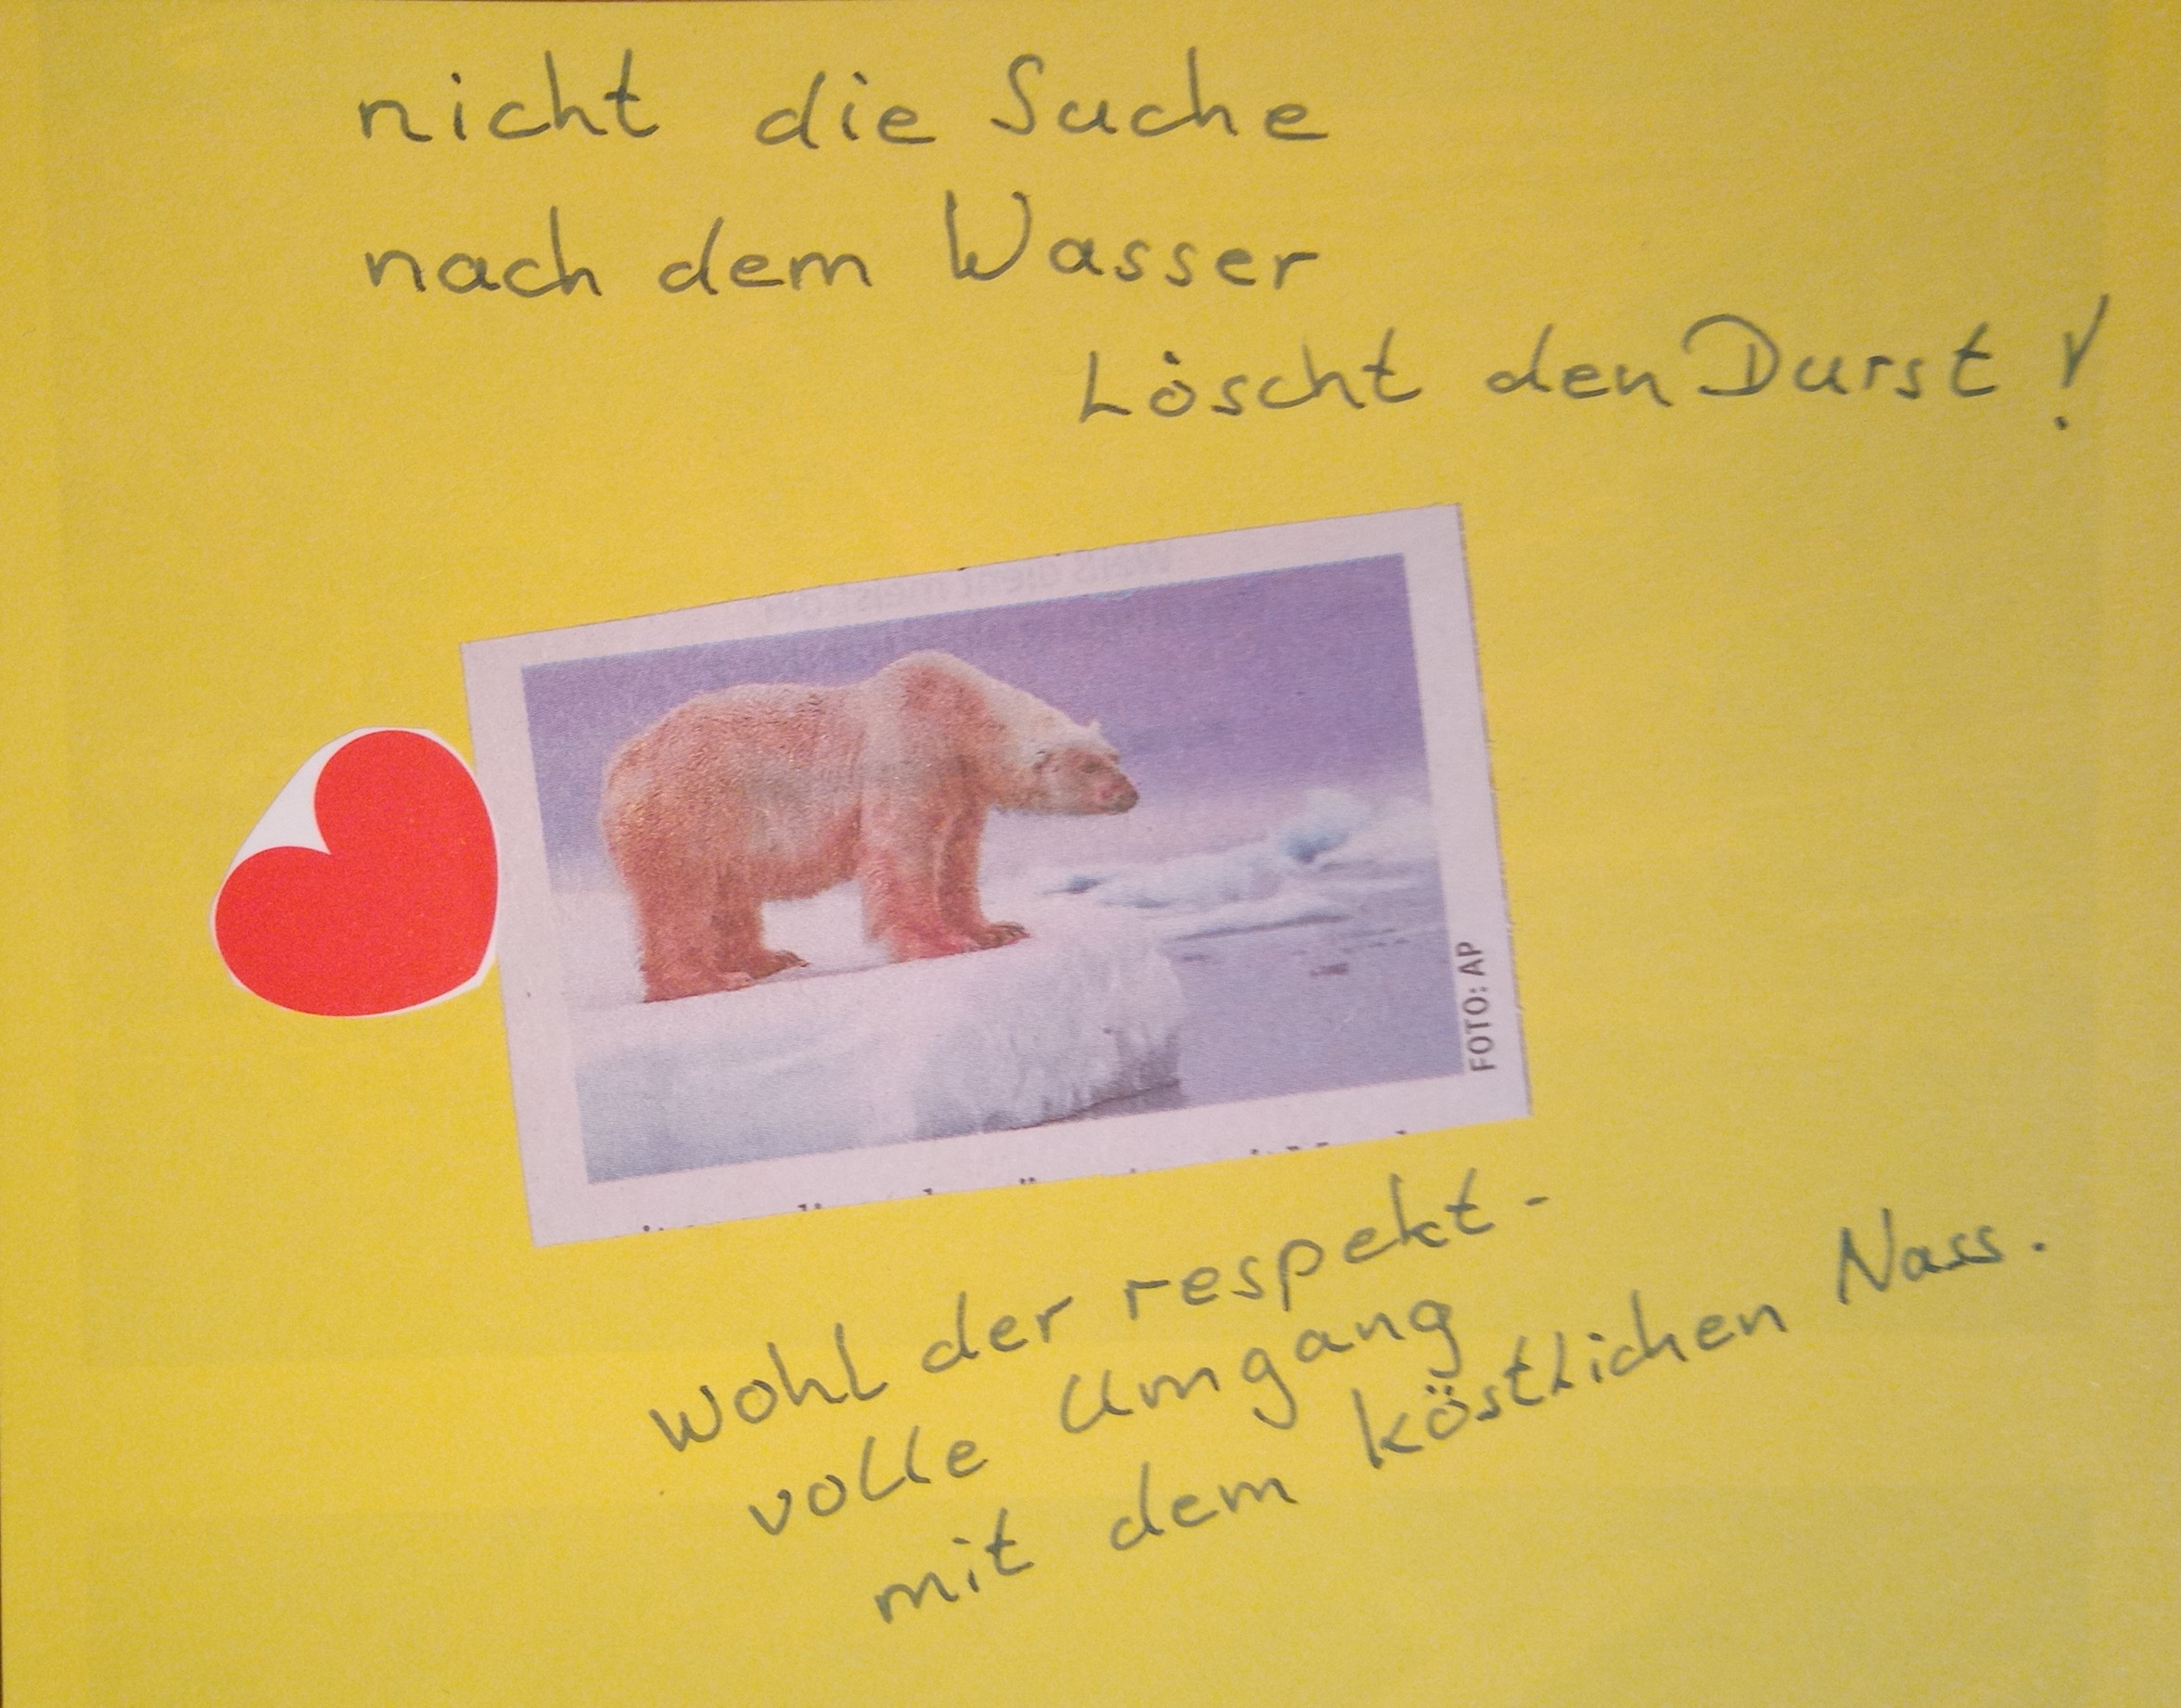 nicht die Suche
nach dem Wasser
Löscht den Durst!
FOTO: AP
wohl der respekt-
volle Umgang
mit dem köstlichen Nass.